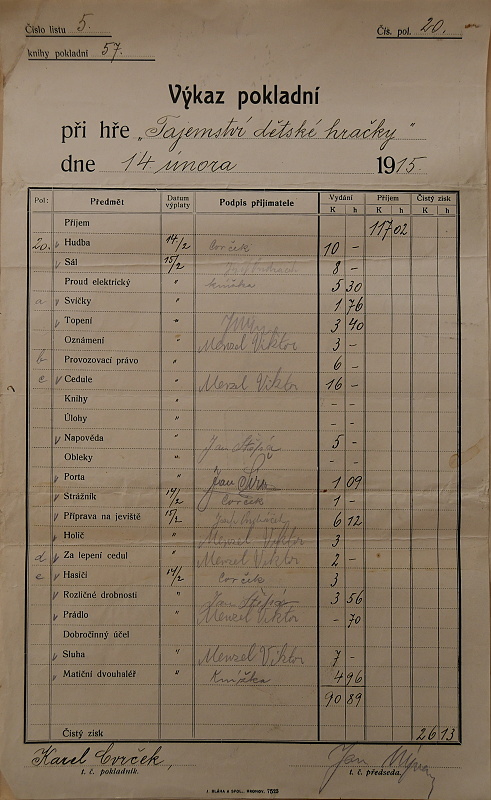 Číslo listu 5. Čís. pol. 20.
knihy pokladní 57.
Výkaz pokladní
při hře „Tajemství dětské hračky"
dne 14 února 1915.
Pol: Předmět Datum výplaty Podpis přijimatele Vydání Příjem Čistý zisk
K h K h K h
Příjem 117 02
20. v Hudba 14/2 Cvrček 10 –
v Sál 15/2 8 –
Proud elektrický " Knížka 5 30
a v Svíčky " 1 76
v Topení " 3 40
Oznámení " Menzel Viktor 3 –
b Provozovací právo " 6 –
c v Cedule " Menzel Viktor 16 –
Knihy " – –
Úlohy " – –
v Napověda " Jan 5 –
Obleky " – –
v Porta " Jan 1 09
v Strážník 14/2 Cvrček 1 –
v Příprava na jeviště 15/2 6 12
v Holič " Menzel Viktor 3
d v Za lepení cedul " Menzel Viktor 2 –
e v Hasiči 14/2 Cvrček 3
v Rozličné drobnosti " Jan 3 56
v Prádlo " Menzel Viktor – 70
Dobročinný účel
v Sluha " Menzel Viktor 7 –
v Matiční dvouhaléř " Knížka 4 96
90 89
Čistý zisk 26 13
Karel Cvrček, Jan
t. č. pokladník. t. č. předseda.
7523